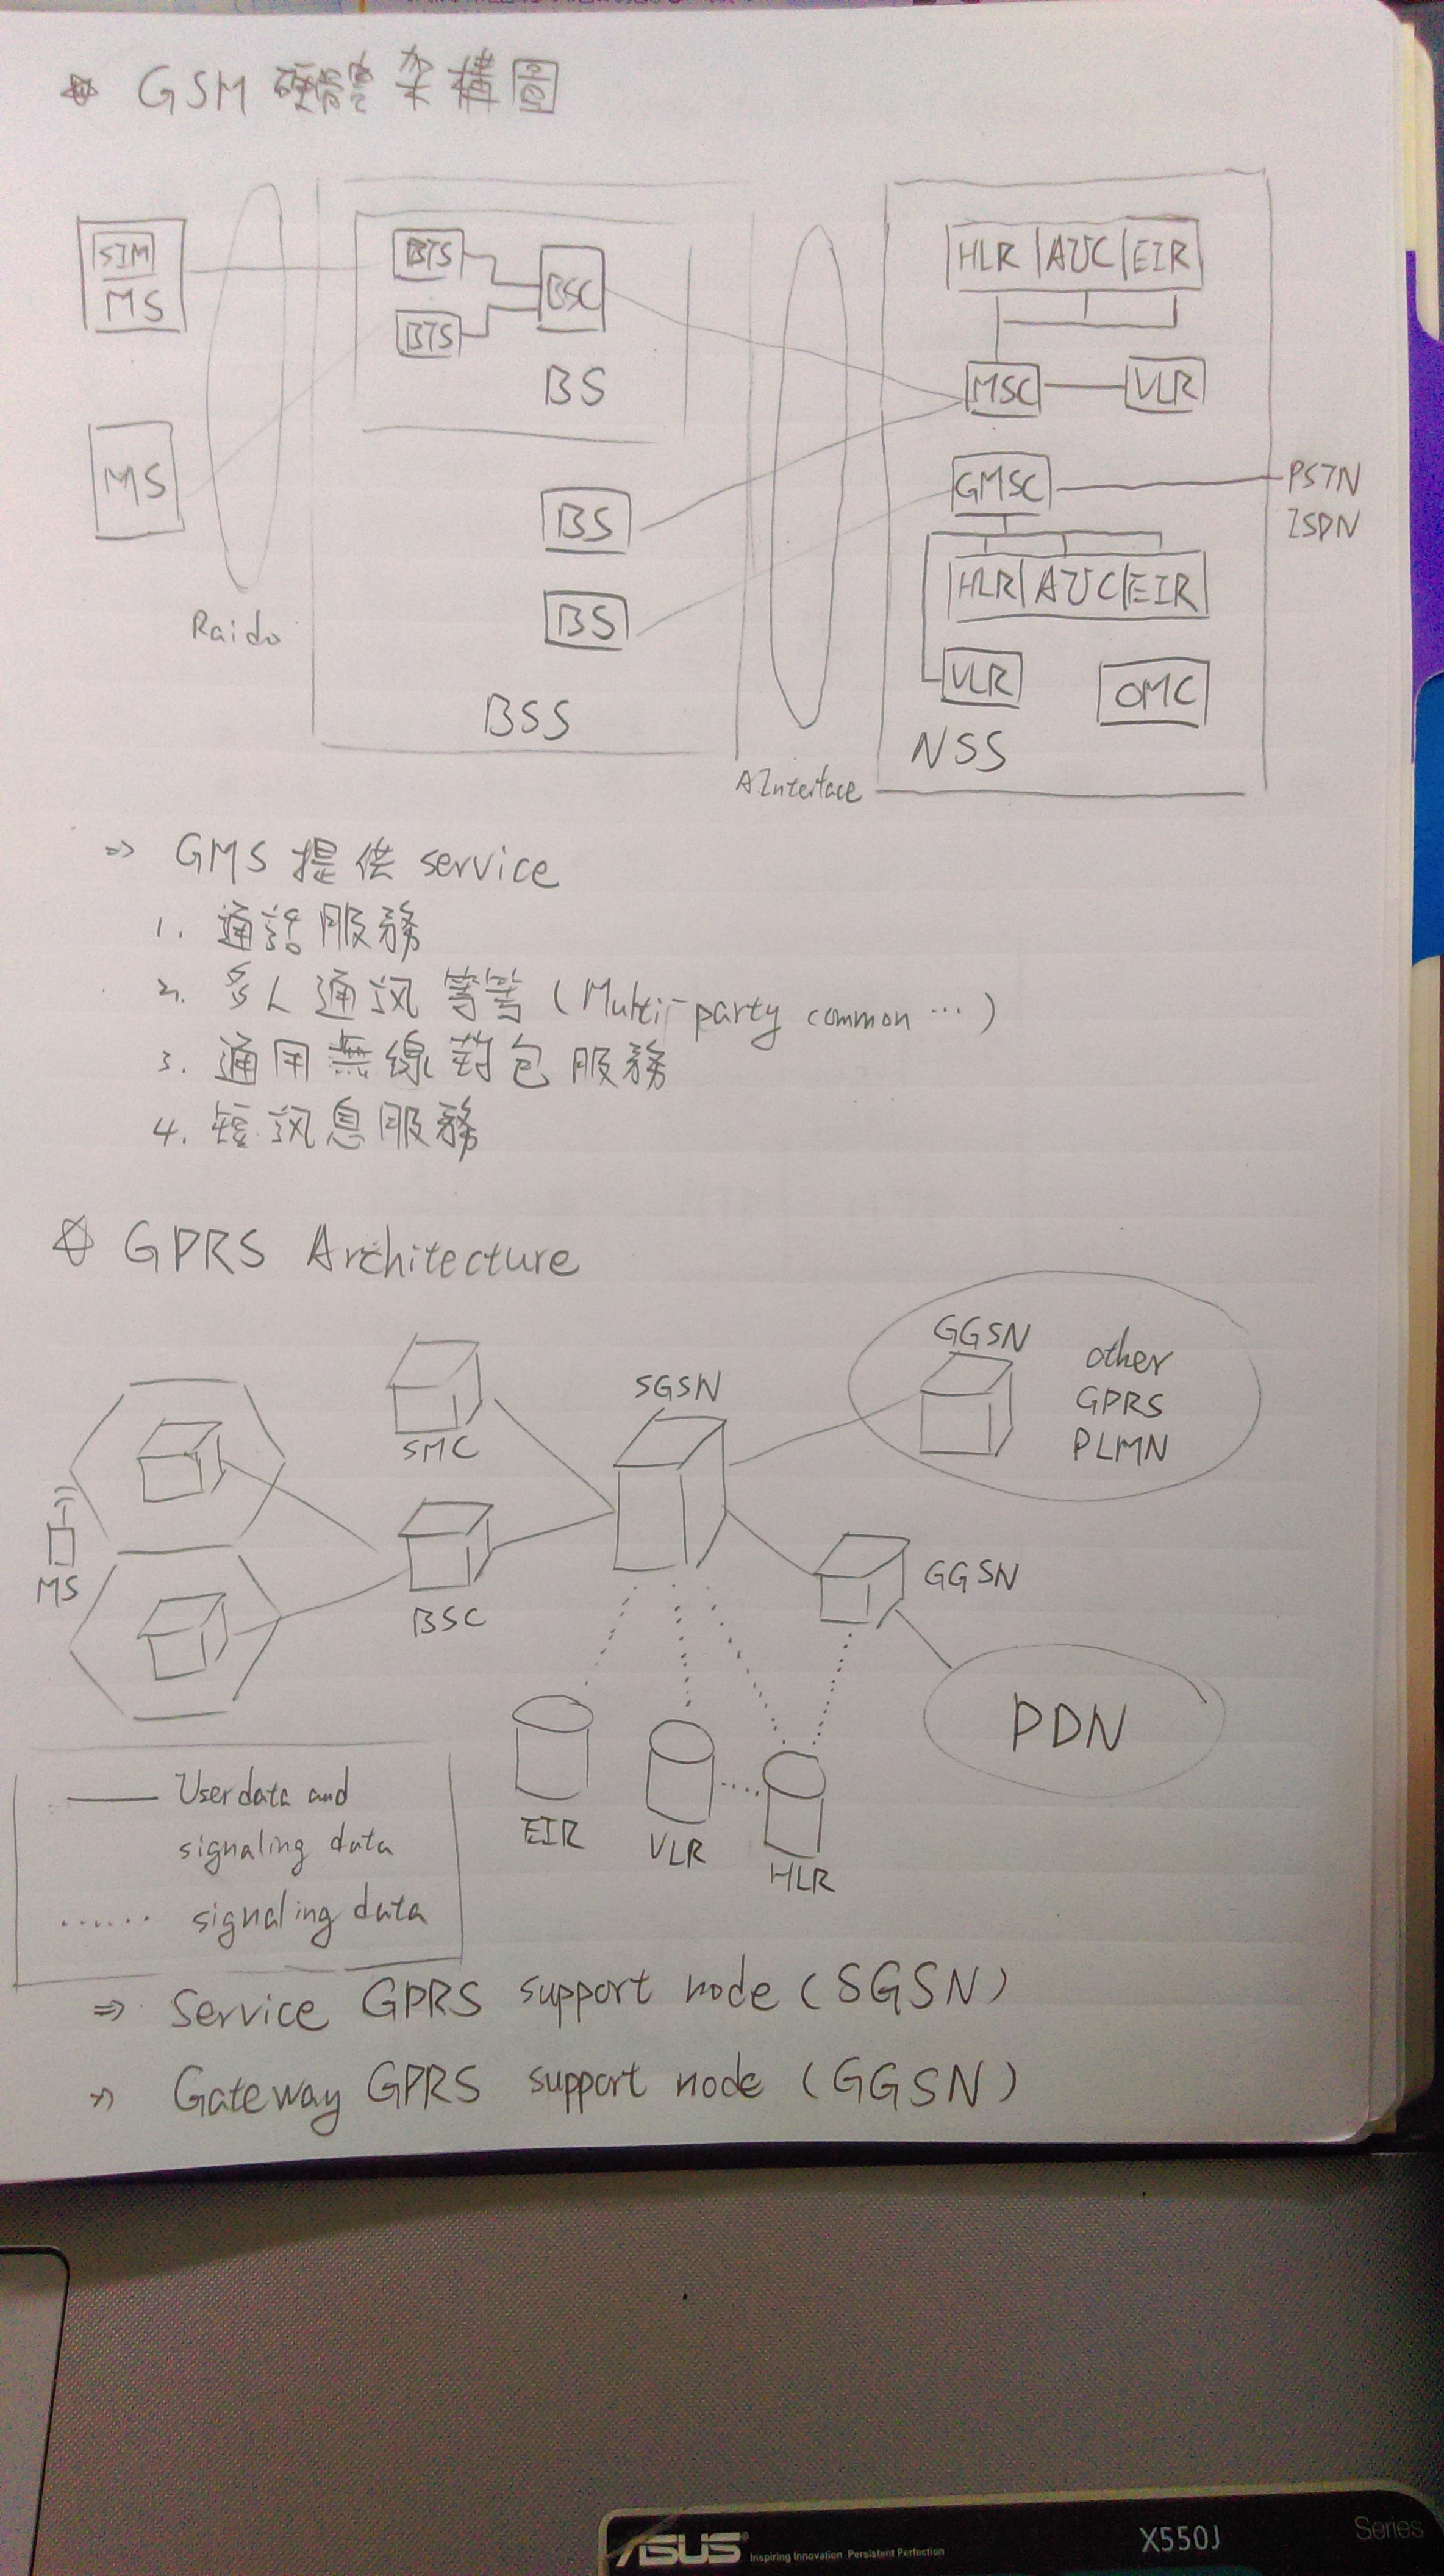 GSM 硬體架構圖
SIM
MS
BTS
BTS
BSC
BS
HLR AUC EIR
MSC
VLR
MS
BS
BS
BSS
GMSC
PSTN
ISDN
HLR AUC EIR
VLR
OMC
NSS
Raido
A Interface
⇒ GMS 提供 service
1. 通話服務
2. 多人通訊等等 (Multi-party common …)
3. 通用無線封包服務
4. 短訊息服務
☆ GPRS Architecture
GGSN
other
GPRS
PLMN
SGSN
SMC
MS
BSC
GGSN
PDN
EIR
VLR
HLR
User data and
signaling data
signaling data
⇒ Service GPRS support node (SGSN)
⇒ Gateway GPRS support node (GGSN)
ASUS
Inspiring Innovation · Persistent Perfection
X550J
Series